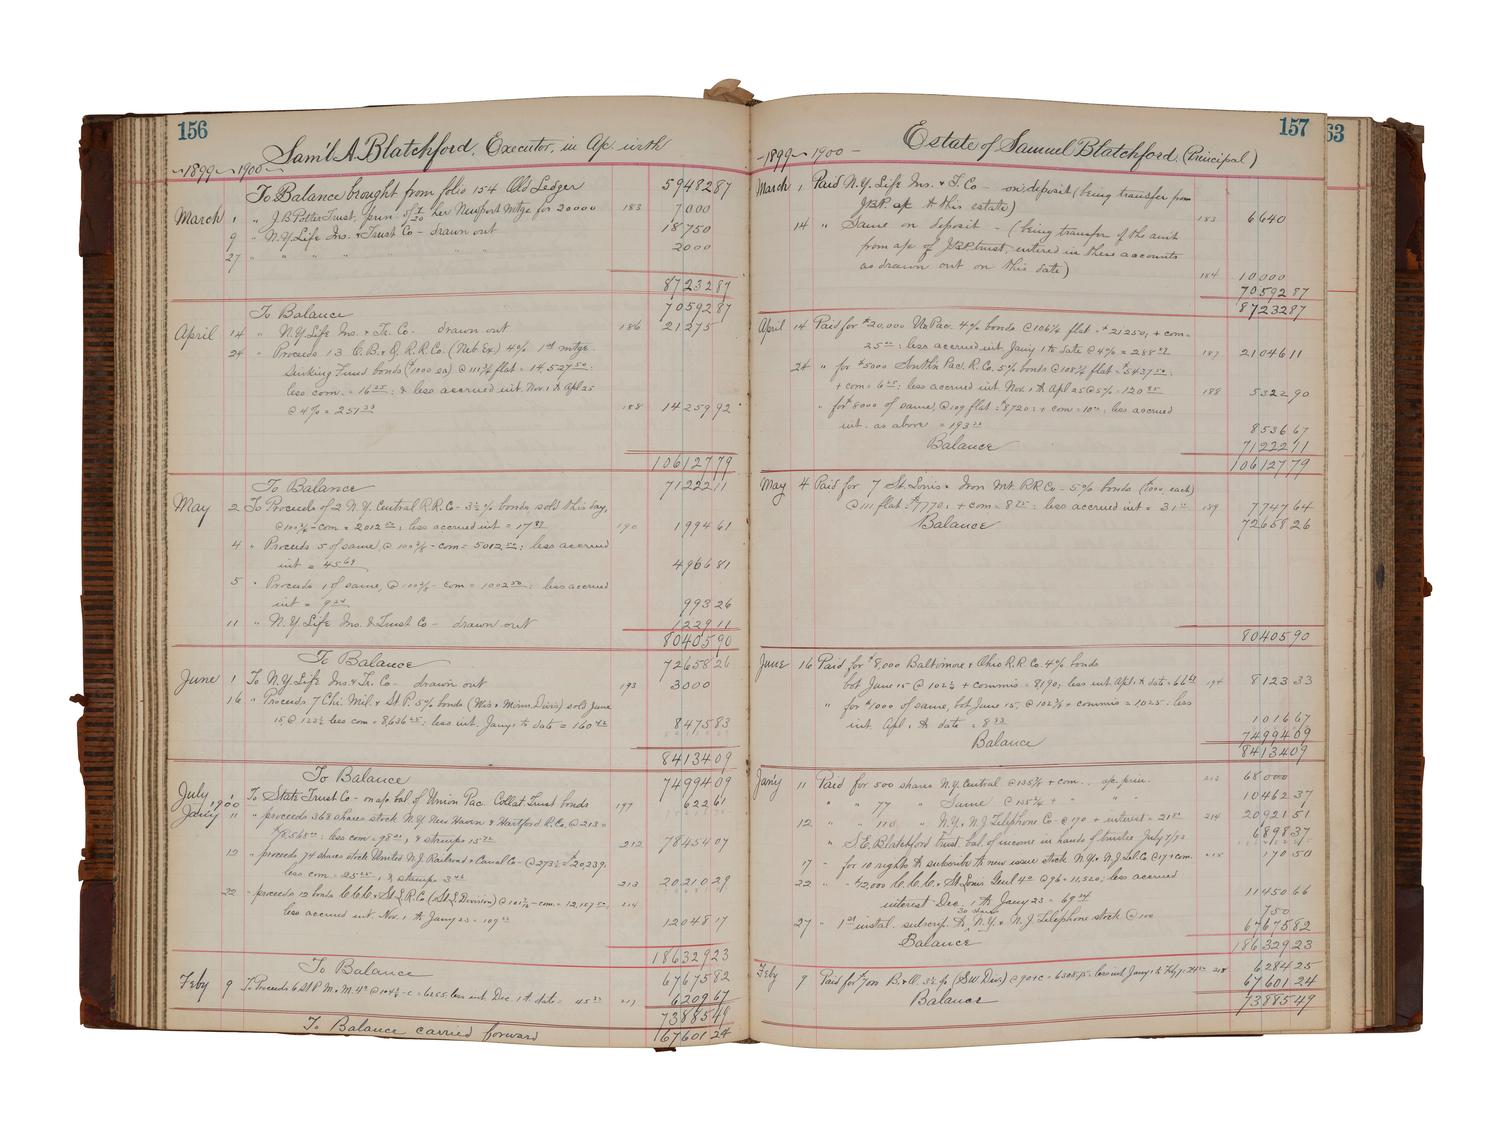 156
Sam'l A. Blatchford, Executor, in a/c with
1899 - 1900
To Balance brought from folio 154 Old Ledger 59482 87
March 1 " J.B. Potter Trust, prin. of 7/20 her Newport mtge for 20000 183 7000
9 " N.Y. Life Ins. & Trust Co - drawn out 18750
27 " " " " " " 2000
87232 87
To Balance 70592 87
April 14 " N.Y. Life Ins. & Tr. Co - drawn out 186 21275
24 " Proceeds 13 C.B. & Q. R.R. Co. (Neb. Ex.) 4% 1st mtge.
Sinking Fund bonds ($1000 ea) @ 111 3/4 flat = 14,527 50:
less com. = 16 25: & less accrued int. Nov. 1 to Apl 25
@ 4% = 251 33 188 14259 92
106127 79
To Balance 71222 11
May 2 To Proceeds of 2 N.Y. Central R.R. Co - 3 1/2 % bonds, sold this day,
@ 100 3/4 - com = 2012 50; less accrued int = 17 89 190 1994 61
4 " Proceeds 5 of same, @ 100 3/8 - com = 5012 50; less accrued
int = 45 69 4966 81
5 " Proceeds 1 of same, @ 100 3/8 - com = 1002 50: less accrued
int = 9 24 993 26
11 " N.Y. Life Ins. & Trust Co - drawn out 1229 11
80405 90
To Balance 72658 26
June 1 To N.Y. Life Ins. & Tr. Co - drawn out 193 3000
16 " Proceeds 7 Chi. Mil. & St P. 5% bonds (Wis & Minn. Divis) sold June
15, @ 123 1/2 less com = 8,636 25: less int. Jany 1 to date = 160 42 8475 83
84134 09
To Balance 74994 09
July 1 To State Trust Co - on a/c bal. of Union Pac. Collat. Trust bonds 197 622 61
1900
Jany 11 " proceeds 368 shares stock N.Y. New Haven & Hartford R.R. Co, @ 213 =
less com = & stamps 212 78454 07
12 " proceeds 74 shares stock United N.J. Railroad & Canal Co - @ 273 1/2 = 20,239;
less com = 25 & stamps 213 20210 29
22 - proceeds 12 bonds C.C.C. & St. L. R. Co (St. L. Division) @ 101 - com = 12,157 50:
less accrued int. Nov. 1 to Jany 23 = 109 33 214 12048 17
186329 23
To Balance 67675 82
Feby 9 To Proceeds 6 St P. M. & M. 4s @ 104 - c = 6255 less int. Dec. 1 to date = 45 33 217 6209 67
73885 49
To Balance carried forward 67601 24
157
63
Estate of Samuel Blatchford. (Principal)
1899 - 1900 -
March 1 Paid N.Y. Life Ins. & T. Co - on deposit (being transfer from
J.B.P. a/c to this estate) 183 6640
14 " Same on deposit - (being transfer of the amt
from a/c of J.B.P. trust, entered in these accounts
as drawn out on this date) 184 10000
70592 87
87232 87
April 14 Paid for $20,000 Un. Pac. 4% bonds @ 106 1/4 flat = $21250, + com =
25 00: less accrued int. Jany 1 to date @ 4% = 228 89 187 21046 11
24 " for $5000 South'n Pac. R. Co. 5% bonds @ 108 3/4 flat = $5437 50:
+ com = 6 25: less accrued int. Nov. 1 to Apl 25 @ 5% = 120 85 188 5322 90
" for $8000 of same, @ 109 flat = $8720: + com = 10 00: less accrued
int. as above = 193 33 8536 67
Balance 71222 11
106127 79
May 4 Paid for 7 St. Louis & Iron Mt. R.R. Co - 5% bonds ($1000 each)
@ 111 flat = $7770; + com = 8 75: less accrued int = 31 11 189 7747 64
Balance 72658 26
80405 90
June 16 Paid for $8,000 Baltimore & Ohio R.R. Co. 4% bonds
bot June 15 @ 102 1/4 + commis = 8190; less int. Apl. 1 to date = 66 67 194 8123 33
" for $1000 of same, bot June 15, @ 102 3/8 + commis = 1025: less
int. Apl. 1 to date = 8 33 1016 67
Balance 74994 09
84134 09
Jany 11 Paid for 500 shares N.Y. Central @ 135 7/8 + com. a/c prin. 212 68000
" " 77 " Same @ 135 3/4 + " " " 10462 37
12 " " 110 " N.Y. & N.J. Telephone Co - @ 190 + interest = 21 20921 51
" S.E. Blatchford Trust. bal. of income in hands of trustee July 7/92 6898 37
17 - for 10 rights to subscribe to new issue stock N.Y. & N.J. Tel. Co @ 17 + com. 170 50
22 " - $12,000 C.C.C. & St. Louis Gen'l 4s @ 96 = 11,520; less accrued
interest Dec. 1 to Jany 23 = 69 34 11450 66
27 " 1st instal. subscrip. to 30 shares N.Y. & N.J. Telephone stock @ 100 750
Balance 67675 82
186329 23
Feby 9 Paid for 7000 B. & O. 3 1/2 % (S.W. Div.) @ 90 + c - less int Jany 1 to Feby 218 6284 25
Balance 67601 24
73885 49